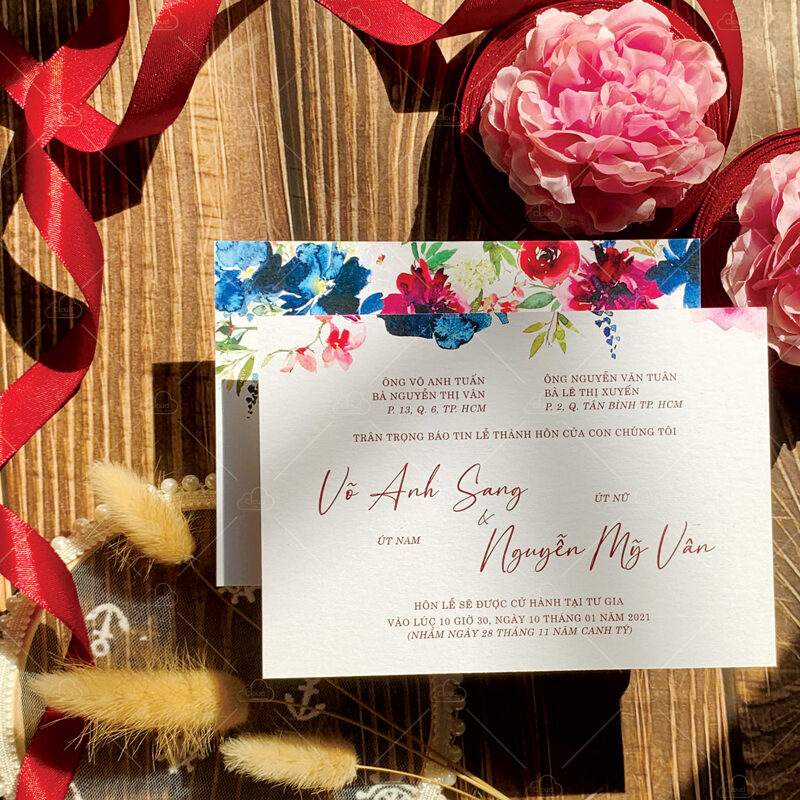 ÔNG VÕ ANH TUẤN
BÀ NGUYỄN THỊ VÂN
P. 13, Q. 6, TP. HCM
ÔNG NGUYỄN VĂN TUÂN
BÀ LÊ THỊ XUYẾN
P. 2, Q. TÂN BÌNH TP. HCM
TRÂN TRỌNG BÁO TIN LỄ THÀNH HÔN CỦA CON CHÚNG TÔI
Võ Anh Sang
ÚT NỮ
&
ÚT NAM
Nguyễn Mỹ Vân
HÔN LỄ SẼ ĐƯỢC CỬ HÀNH TẠI TƯ GIA
VÀO LÚC 10 GIỜ 30, NGÀY 10 THÁNG 01 NĂM 2021
(NHẰM NGÀY 28 THÁNG 11 NĂM CANH TÝ)